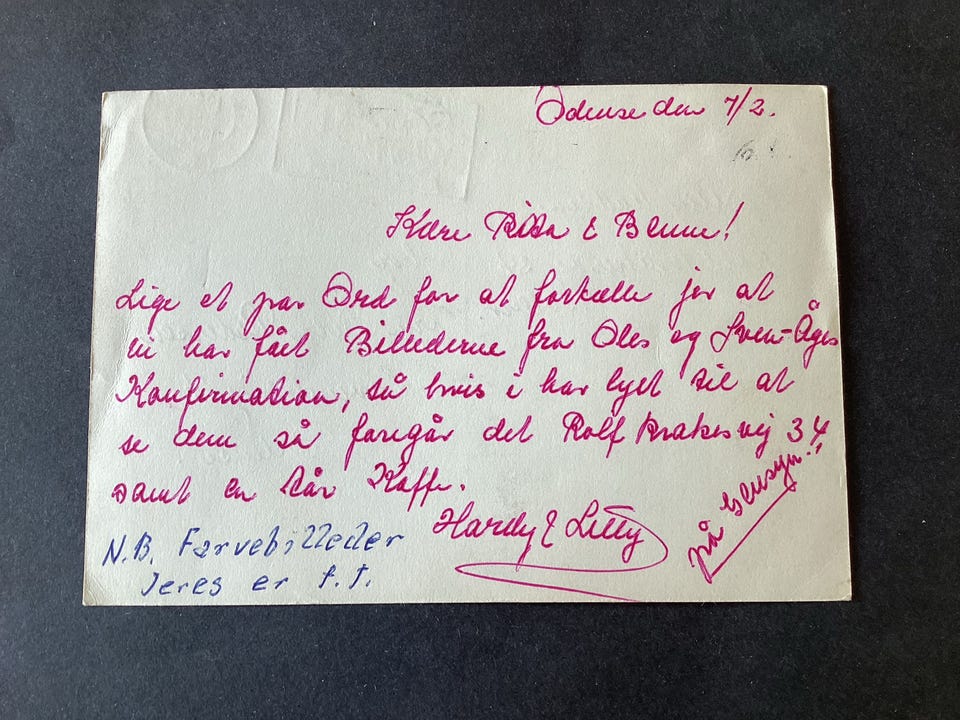 Odense den 7/2.
Kære Ritta & Benne!
Lige et par Ord for at fortælle jer at
vi har fået Billederne fra Oles og Sven-Åges
Konfirmation, så hvis i har lyst til at
se dem så foregår det Rolf Krakesvej 34
samt en tår Kaffe.
Hardy & Litty
på Gensyn!!
N.B. Farvebilleder
Jeres er f.f.